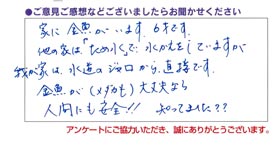 ●ご意見ご感想などございましたらお聞かせください
家に金魚がいます。6才です。
他の家は「ため水」で、水かえをしていますが
我が家は、水道のジャ口から、直接です。
金魚が(メダカも)大丈夫なら
人間にも安全!! 知ってました??
アンケートにご協力いただき、誠にありがとうございます。